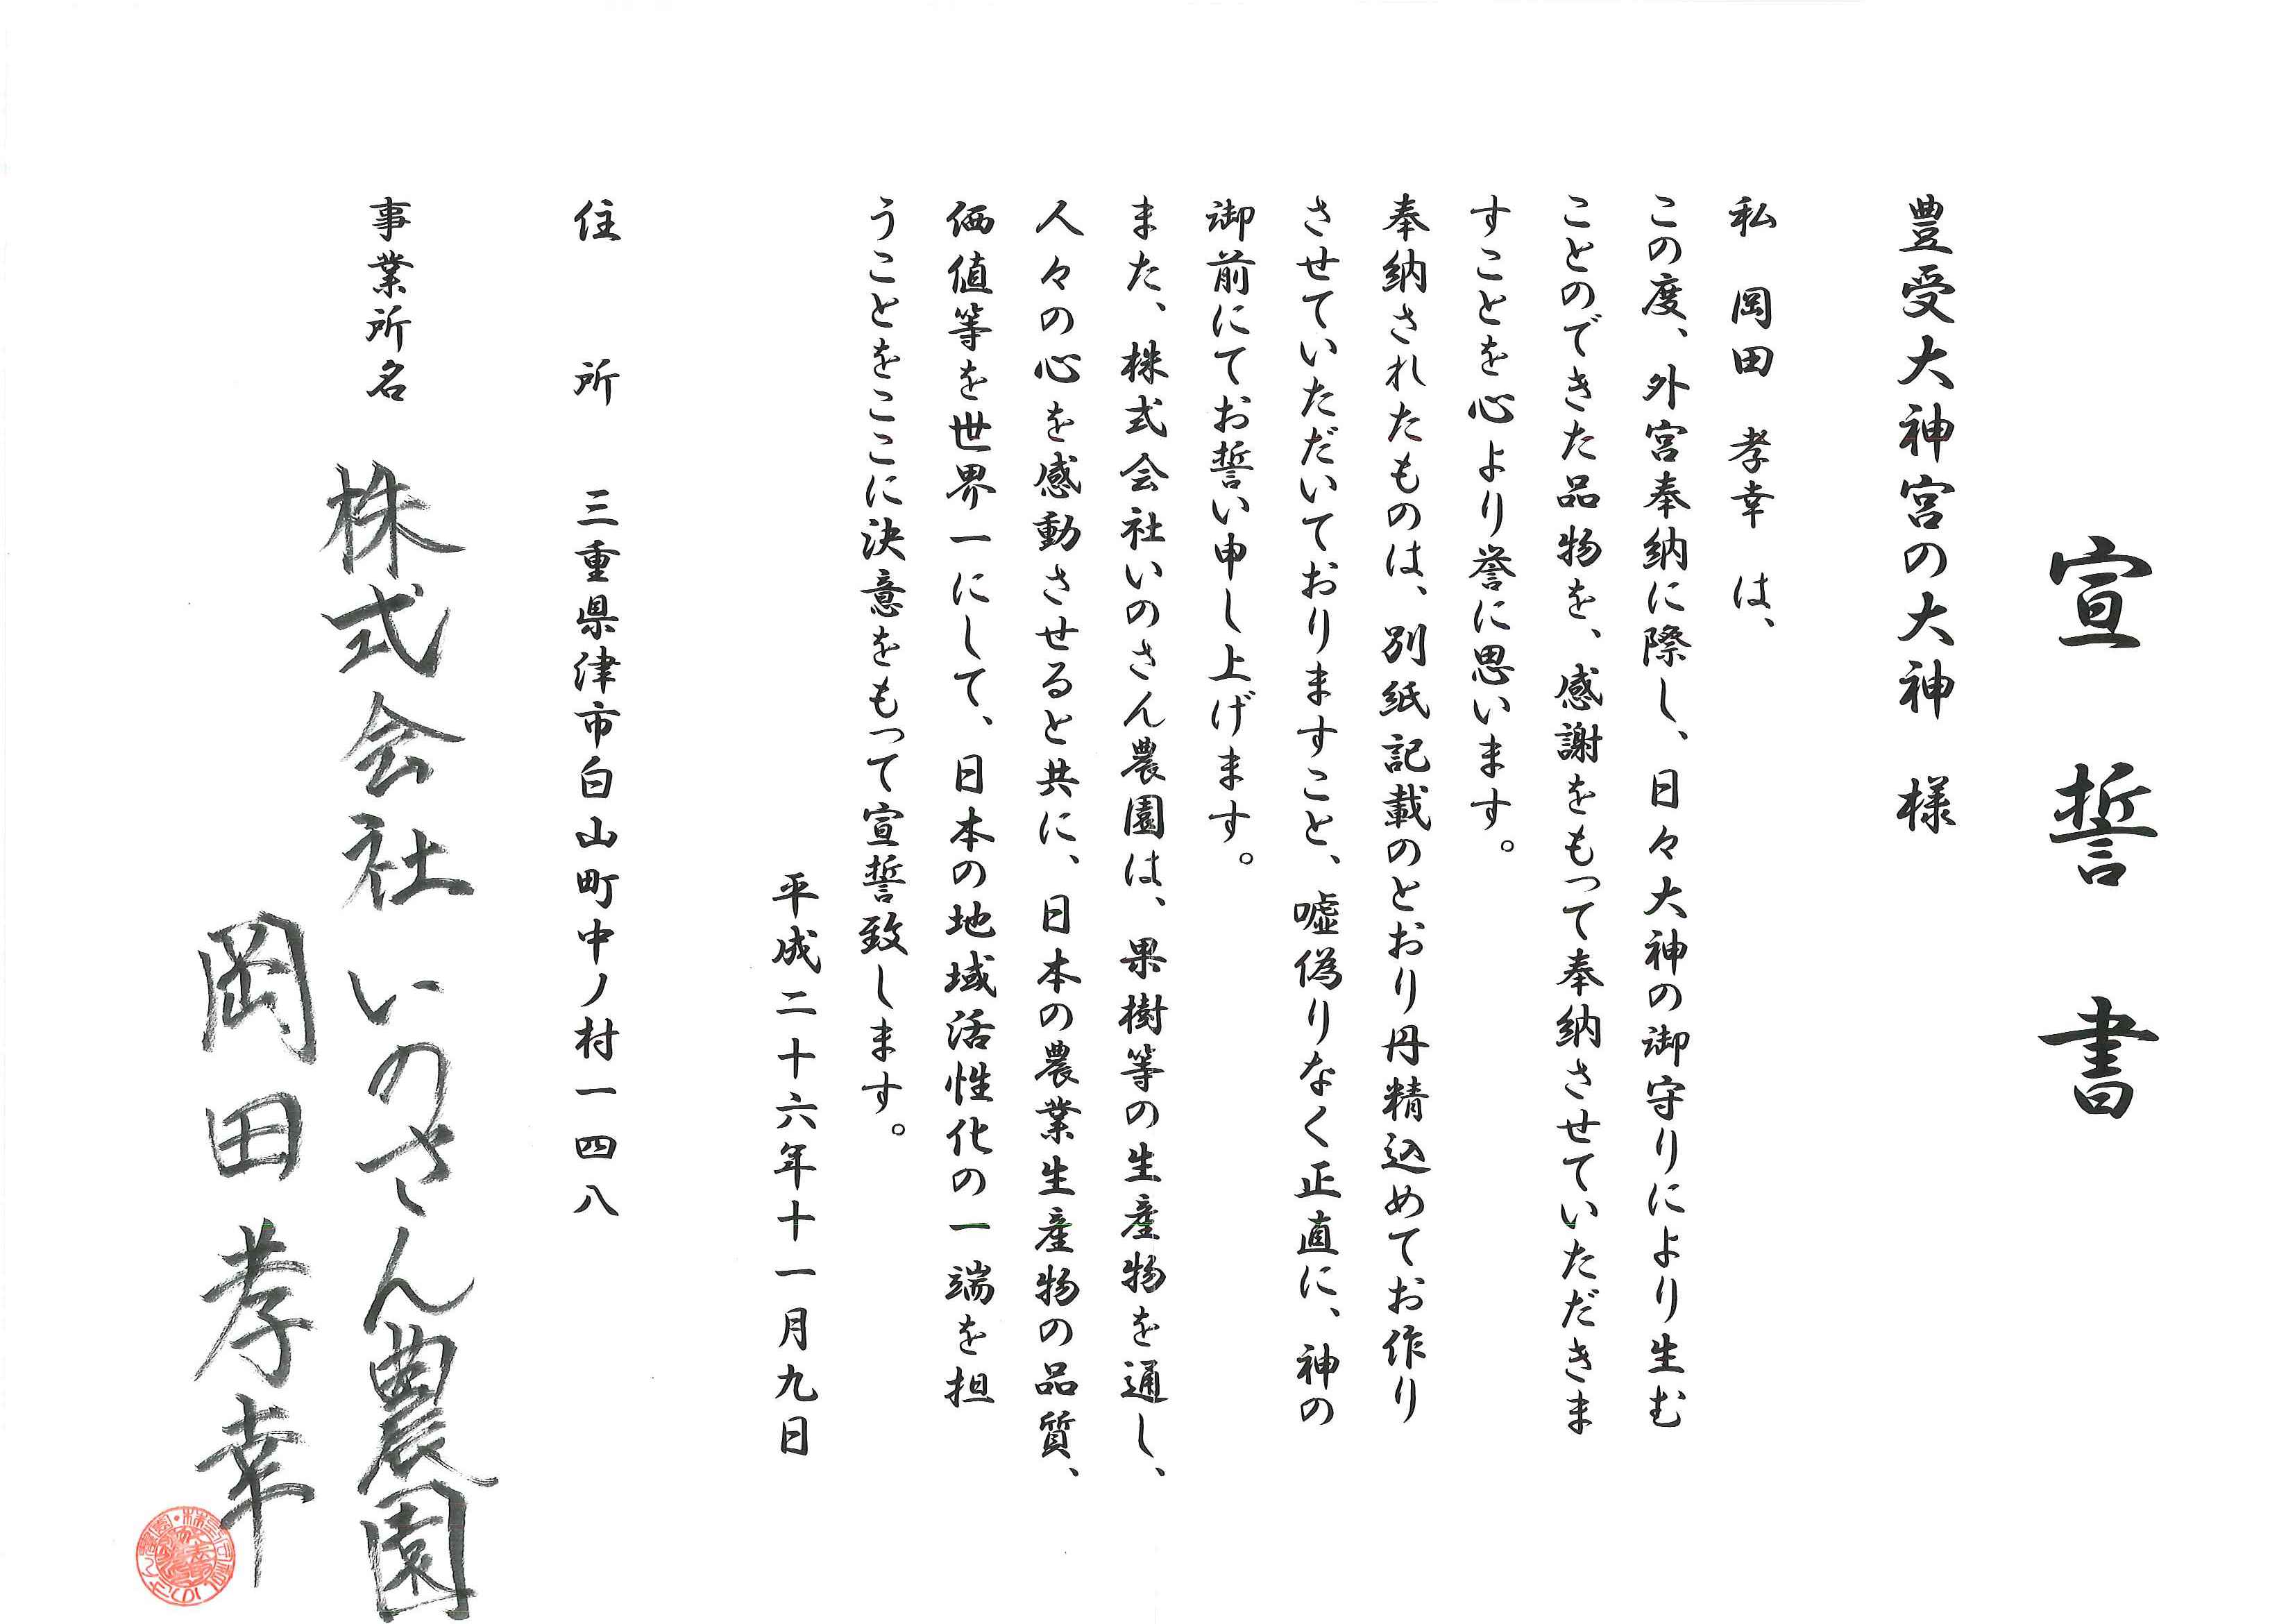 宣誓書
豊受大神宮の大神 様
私 岡田 孝幸 は、
この度、外宮奉納に際し、日々大神の御守りにより生む
ことのできた品物を、感謝をもって奉納させていただきま
すことを心より誉に思います。
奉納されたものは、別紙記載のとおり丹精込めてお作り
させていただいておりますこと、嘘偽りなく正直に、神の
御前にてお誓い申し上げます。
また、株式会社いのさん農園は、果樹等の生産物を通し、
人々の心を感動させると共に、日本の農業生産物の品質、
価値等を世界一にして、日本の地域活性化の一端を担
うことをここに決意をもって宣誓致します。
平成二十六年十一月九日
住所 三重県津市白山町中ノ村一四八
事業所名 株式会社いのさん農園
岡田孝幸